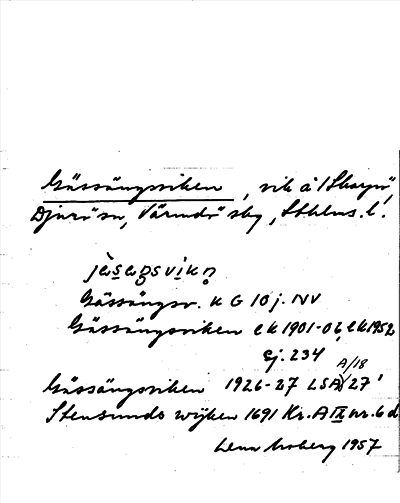 Gässängsviken, vik å 1 Skarpö,
Djurö sn, Värmdö sky, Sthlms. l.
jɛ̀saŋsvikn̥
Gässängsv. K G 10 j. NV
Gässängsviken ek 1901-06, ek 1952
Ej. 234
Gässängsviken 1926-27 LSA A/18 27'
Stensunds wijken 1691 Kr. A IX nr. 6 d
1957